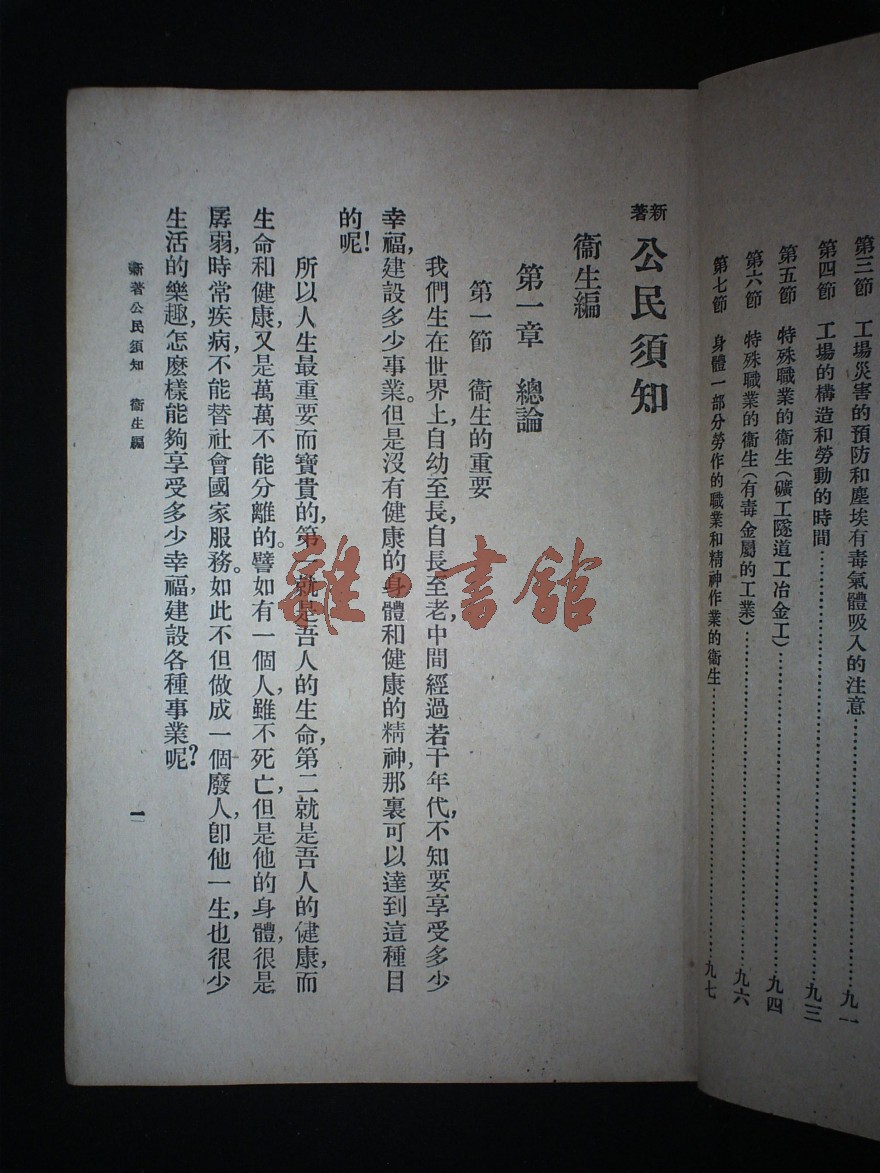 第三節　工場災害的預防和塵埃有毒氣體吸入的注意……九一
第四節　工場的構造和勞動的時間……九三
第五節　特殊職業的衞生（礦工隧道工冶金工）……九四
第六節　特殊職業的衞生（有毒金屬的工業）……九六
第七節　身體一部分勞作的職業和精神作業的衞生……九七
新著公民須知
衞生編
第一章　總論
第一節　衞生的重要
我們生在世界上，自幼至長，自長至老，中間經過若干年代，不知要享受多少
幸福，建設多少事業。但是沒有健康的身體和健康的精神，那裏可以達到這種目
的呢！
所以人生最重要而寶貴的，第一就是吾人的生命，第二就是吾人的健康，而
生命和健康，又是萬萬不能分離的。譬如有一個人，雖不死亡，但是他的身體，很是
孱弱，時常疾病，不能替社會國家服務。如此不但做成一個廢人，卽他一生，也很少
生活的樂趣，怎麽樣能夠享受多少幸福，建設各種事業呢？
新著公民須知　衞生編
一
雜·書館